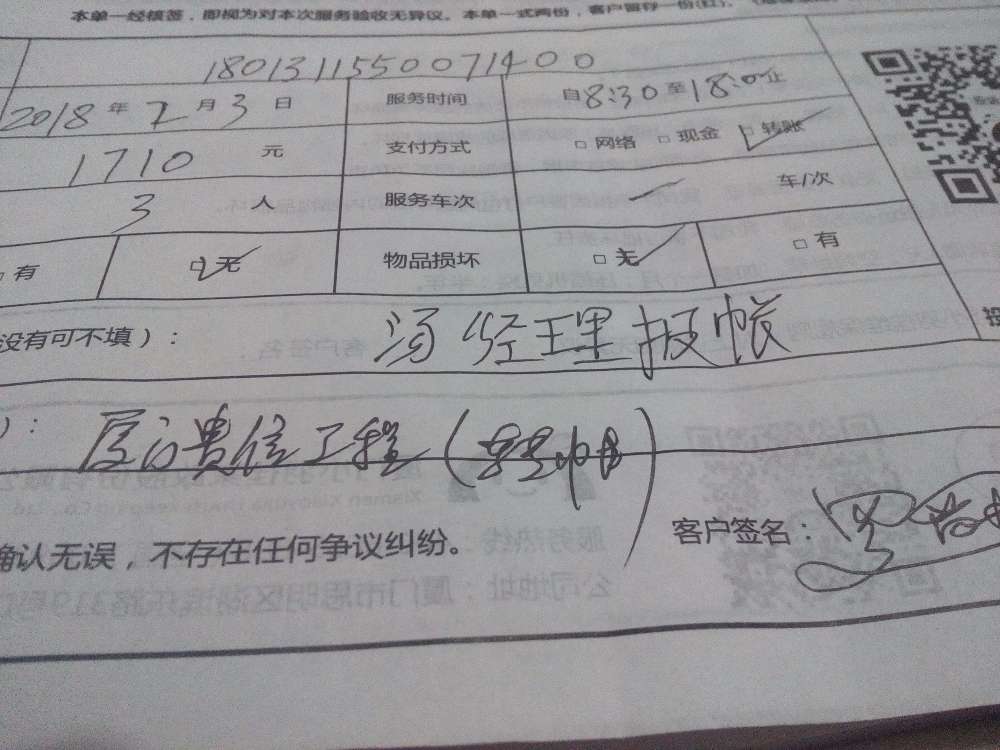 本单一经核签，即视为对本次服务验收无异议。本单一式两份，客户留存一份(红)。
18013115500071400
2018 年 2 月 3 日 服务时间 自8:30至18:0止
1710 元 支付方式 □ 网络 □ 现金 ☑ 转账
3 人 服务车次 车/次
□ 有 ☑ 无 物品损坏 ☑ 无 □ 有
没有可不填）： 汤经理报帐
）： 厦门贵信工程（转帐）
确认无误，不存在任何争议纠纷。 客户签名：